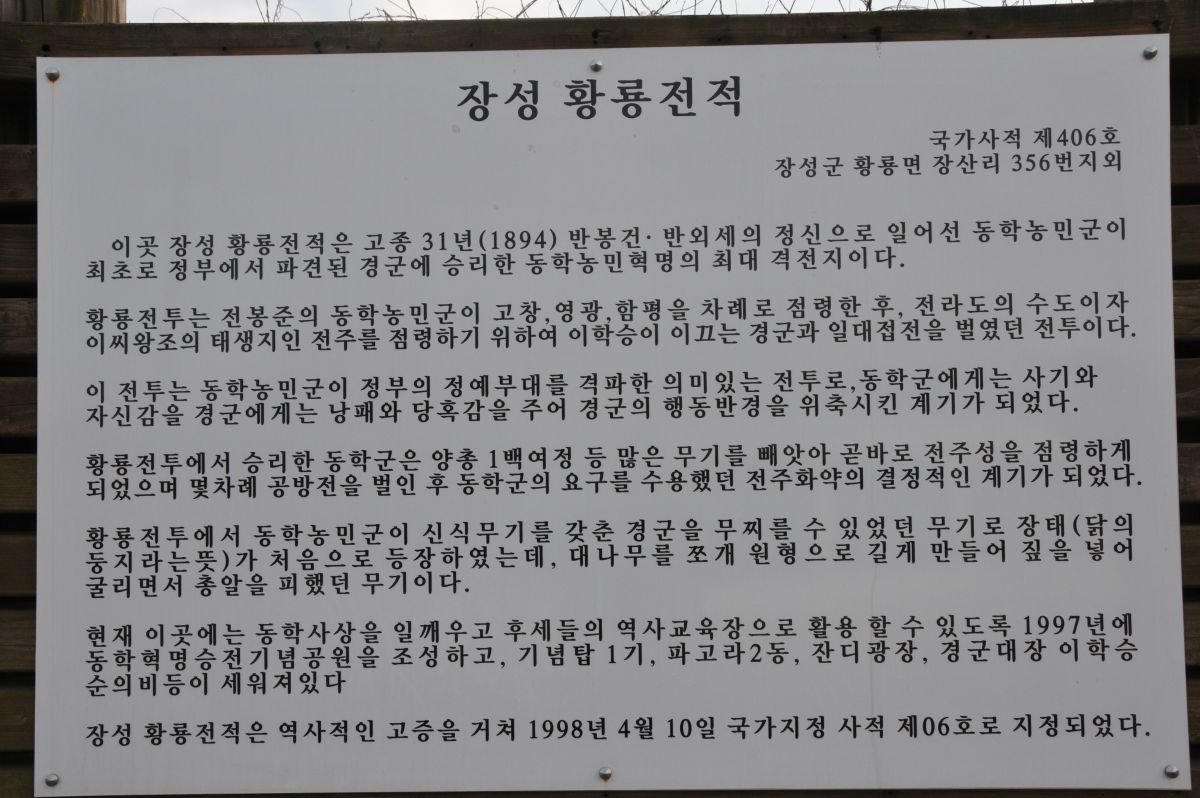 장성 황룡전적
국가사적 제406호
장성군 황룡면 장산리 356번지외
이곳 장성 황룡전적은 고종 31년(1894) 반봉건· 반외세의 정신으로 일어선 동학농민군이
최초로 정부에서 파견된 경군에 승리한 동학농민혁명의 최대 격전지이다.
황룡전투는 전봉준의 동학농민군이 고창,영광,함평을 차례로 점령한 후, 전라도의 수도이자
이씨왕조의 태생지인 전주를 점령하기 위하여 이학승이 이끄는 경군과 일대접전을 벌였던 전투이다.
이 전투는 동학농민군이 정부의 정예부대를 격파한 의미있는 전투로,동학군에게는 사기와
자신감을 경군에게는 낭패와 당혹감을 주어 경군의 행동반경을 위축시킨 계기가 되었다.
황룡전투에서 승리한 동학군은 양총 1백여정 등 많은 무기를 빼앗아 곧바로 전주성을 점령하게
되었으며 몇차례 공방전을 벌인 후 동학군의 요구를 수용했던 전주화약의 결정적인 계기가 되었다.
황룡전투에서 동학농민군이 신식무기를 갖춘 경군을 무찌를 수 있었던 무기로 장태(닭의
둥지라는뜻)가 처음으로 등장하였는데, 대나무를 쪼개 원형으로 길게 만들어 짚을 넣어
굴리면서 총알을 피했던 무기이다.
현재 이곳에는 동학사상을 일깨우고 후세들의 역사교육장으로 활용 할 수 있도록 1997년에
동학혁명승전기념공원을 조성하고, 기념탑 1기, 파고라2동, 잔디광장, 경군대장 이학승
순의비등이 세워져있다
장성 황룡전적은 역사적인 고증을 거쳐 1998년 4월 10일 국가지정 사적 제06호로 지정되었다.